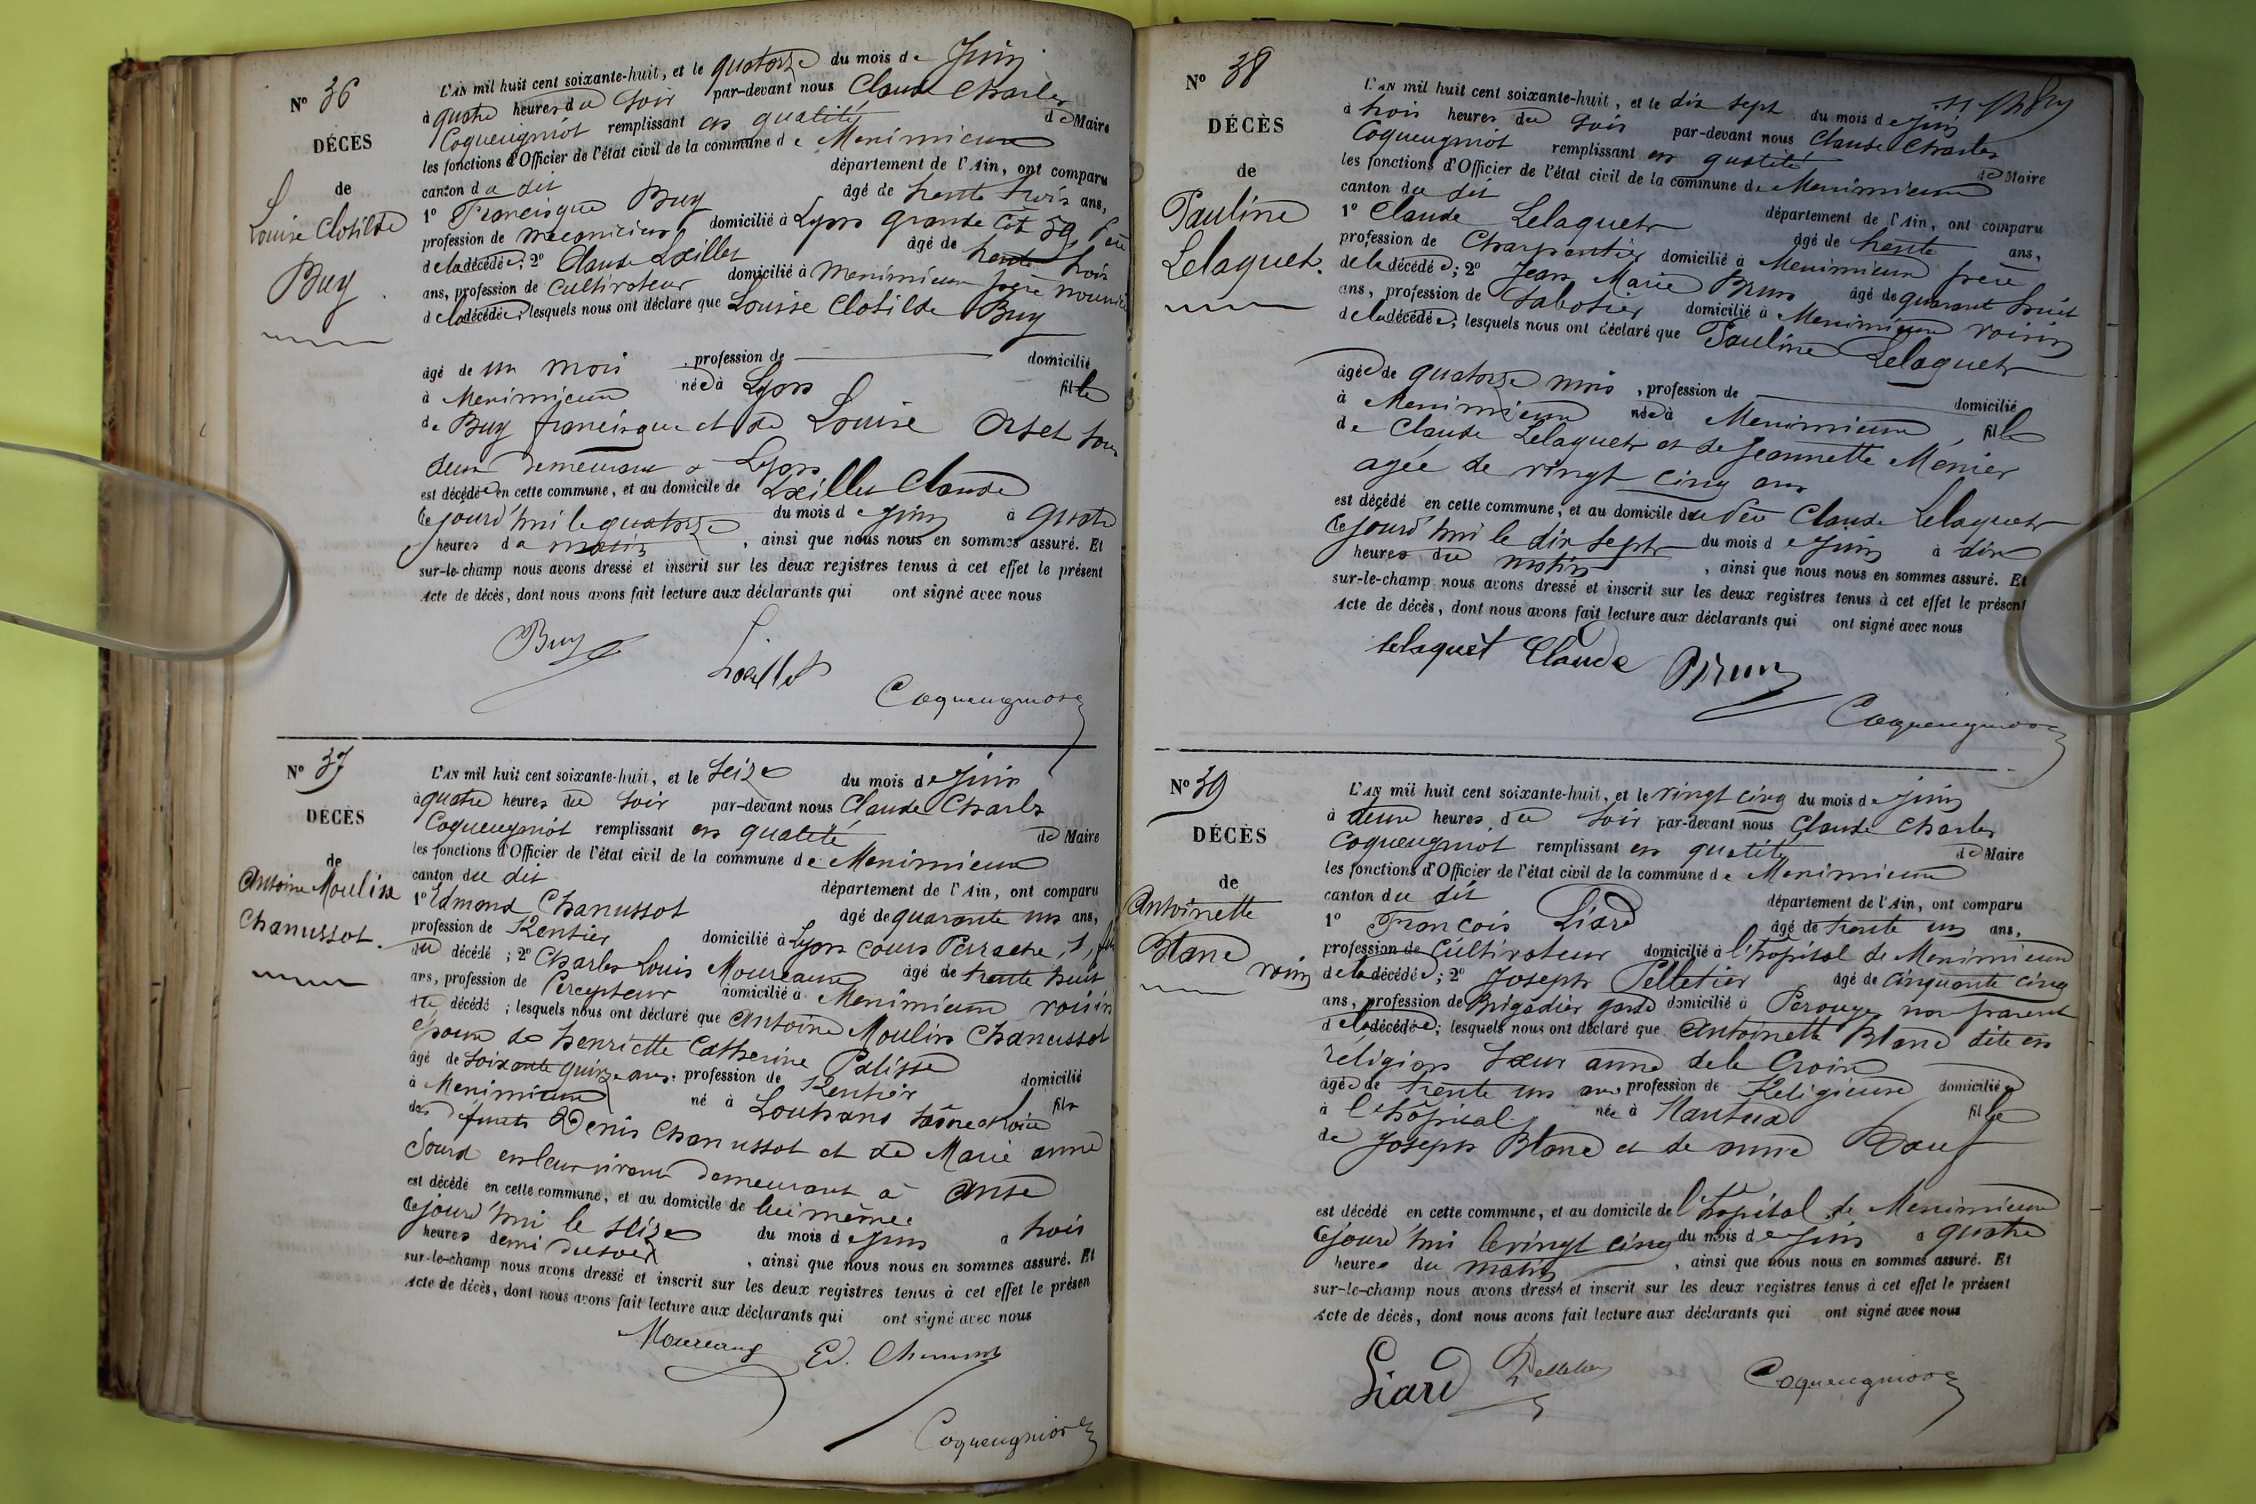 N° 36
DÉCÈS
de
Louise Clotilde
Buy
L'AN mil huit cent soixante-huit, et le quatorze du mois de Juin
à quatre heures du soir par-devant nous Claude Charles
Coqueugniot remplissant en qualité de Maire
les fonctions d'Officier de l'état civil de la commune de Meximieux
canton du dit département de l'Ain, ont comparu
1° Francisque Buy âgé de trente trois ans,
profession de mécanicien domicilié à Lyon grande Côte 59, père
de la décédée; 2° Claude Loeillet âgé de trente trois
ans, profession de Cultivateur domicilié à Meximieux père nourricier
de la décédée; lesquels nous ont déclaré que Louise Clotilde Buy
âgé de un mois profession de domicilié
à Meximieux née à Lyon fille
de Buy francisque et de Louise Orset tous
deux demeurant à Lyon
est décédée en cette commune, et au domicile de Loeillet Claude
Cejourd'hui le quatorze du mois de Juin à quatre
heures du matin, ainsi que nous nous en sommes assuré. Et
sur-le-champ nous avons dressé et inscrit sur les deux registres tenus à cet effet le présent
Acte de décès, dont nous avons fait lecture aux déclarants qui ont signé avec nous
Buy
Loeillet
Coqueugniot
N° 37
DÉCÈS
de
Antoine Moulin
Chanussot.
L'AN mil huit cent soixante-huit, et le seize du mois de Juin
à quatre heures du soir par-devant nous Claude Charles
Coqueugniot remplissant en qualité de Maire
les fonctions d'Officier de l'état civil de la commune de Meximieux
canton du dit département de l'Ain, ont comparu
1° Edmond Chanussot âgé de quarante un ans,
profession de Rentier domicilié à Lyon cours Perrache, 1, fils
du décédé; 2° Charles Louis Moureaux âgé de trente huit
ans, profession de Percepteur domicilié à Meximieux voisin
du décédé; lesquels nous ont déclaré que Antoine Moulin Chanussot
époux de henriette Catherine Palisse
âgé de soixante quinze ans, profession de Rentier domicilié
à Meximieux né à Louhans Saône et Loire fils
des défunts Denis Chanussot et de Marie anne
Sourd en leur vivant demeurant à Anse
est décédé en cette commune, et au domicile de lui même
Cejourd'hui le seize du mois de Juin à trois
heures demi du soir, ainsi que nous nous en sommes assuré. Et
sur-le-champ nous avons dressé et inscrit sur les deux registres tenus à cet effet le présen
Acte de décès, dont nous avons fait lecture aux déclarants qui ont signé avec nous
Moureaux Ed. Chanussot
Coqueugniot
N° 38
DÉCÈS
de
Pauline
Lelaquet.
L'AN mil huit cent soixante-huit, et le dix sept du mois de Juin
à trois heures du soir par-devant nous Claude Charles
Coqueugniot remplissant en qualité de Maire
les fonctions d'Officier de l'état civil de la commune de Meximieux
canton du dit département de l'Ain, ont comparu
1° Claude Lelaquet âgé de trente ans,
profession de Charpentier domicilié à Meximieux père
de la décédée; 2° Jean Marie Brun âgé de quarante huit
ans, profession de Sabotier domicilié à Meximieux voisin
de la décédée; lesquels nous ont déclaré que Pauline Lelaquet
âgée de quatorze mois, profession de domicilié
à Meximieux née à Meximieux, fille
de Claude Lelaquet et de Jeannette Monier
agée de vingt cinq ans
est décédé en cette commune, et au domicile de Claude Lelaquet
Cejourd'hui le dix sept du mois de Juin à dix
heures du matin, ainsi que nous nous en sommes assuré. Et
sur-le-champ nous avons dressé et inscrit sur les deux registres tenus à cet effet le présent
Acte de décès, dont nous avons fait lecture aux déclarants qui ont signé avec nous
lelaquet Claude Brun
Coqueugniot
N° 39
DÉCÈS
de
Antoinette
Blanc
L'AN mil huit cent soixante-huit, et le vingt cinq du mois de Juin
à deux heures du soir par-devant nous Claude Charles
Coqueugniot remplissant en qualité de Maire
les fonctions d'Officier de l'état civil de la commune de Meximieux
canton du dit département de l'Ain, ont comparu
1° François Liard âgé de trente un ans,
profession de Cultivateur domicilié à l'hôpital de Meximieux
voisin de la décédée; 2° Joseph Pelletier âgé de cinquante cinq
ans, profession de Brigadier garde domicilié à Pérouges non parent
de la décédée; lesquels nous ont déclaré que Antoinette Blanc dite en
réligion Soeur anne de la Croix
âgée de trente un ans, profession de Religieuse domiciliée
à l'hôpital née à Nantua fille
de Joseph Blanc et de anne
est décédé en cette commune, et au domicile de l'hôpital de Meximieux
Cejourd'hui le vingt cinq du mois de Juin à quatre
heures du matin, ainsi que nous nous en sommes assuré. Et
sur-le-champ nous avons dressé et inscrit sur les deux registres tenus à cet effet le présent
Acte de décès, dont nous avons fait lecture aux déclarants qui ont signé avec nous
Liard Pelletier Coqueugniot